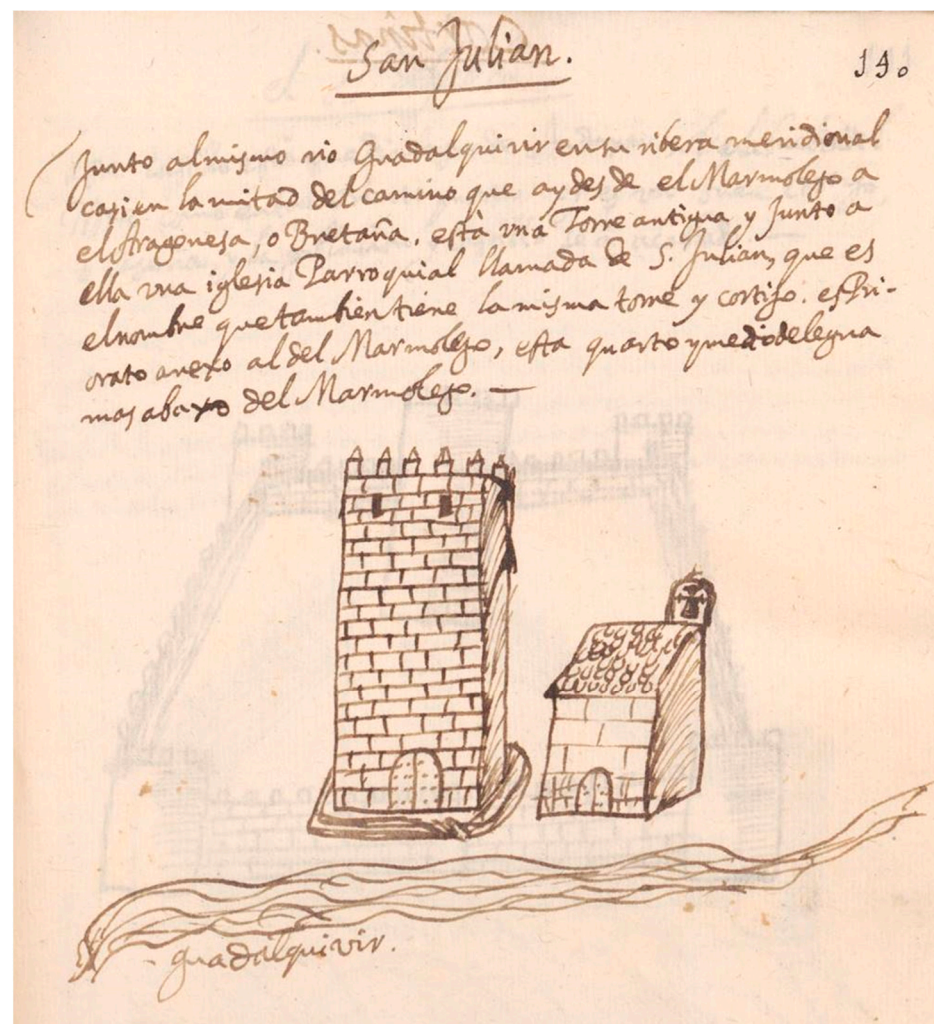 San Julian.
110
Junto al mismo rio Guadalquivir en su ribera meridional
casi en la mitad del camino que ay desde el Marmolejo a
el Aragonesa, o Bretaña. està vna Torre antigua y Junto a
ella vna iglesia Parroquial llamada de S. Julian, que es
el nombre que tambien tiene la misma torre y cortijo. es Pri-
orato anexo al del Marmolejo, esta quarto y medio de legua
mas abaxo del Marmolejo. —
Guadalquivir.